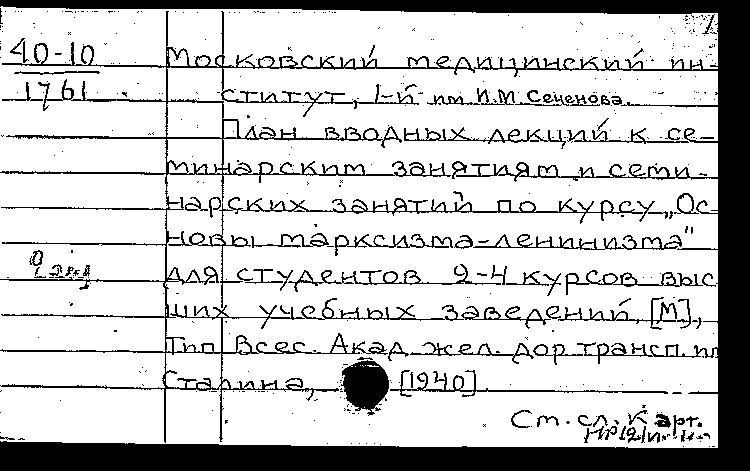 40-10
1761
Московский медицинский ин-
ститут, 1-й им И.М. Сеченова.
План вводных лекций к се-
минарским занятиям и семи-
нарских занятий по курсу „Ос
новы марксизма-ленинизма"
для студентов 2-4 курсов выс
ших учебных заведений, [М],
Тип Всес. Акад. жел. дор трансп. им
Сталина, [1940].
См. сл. карт.